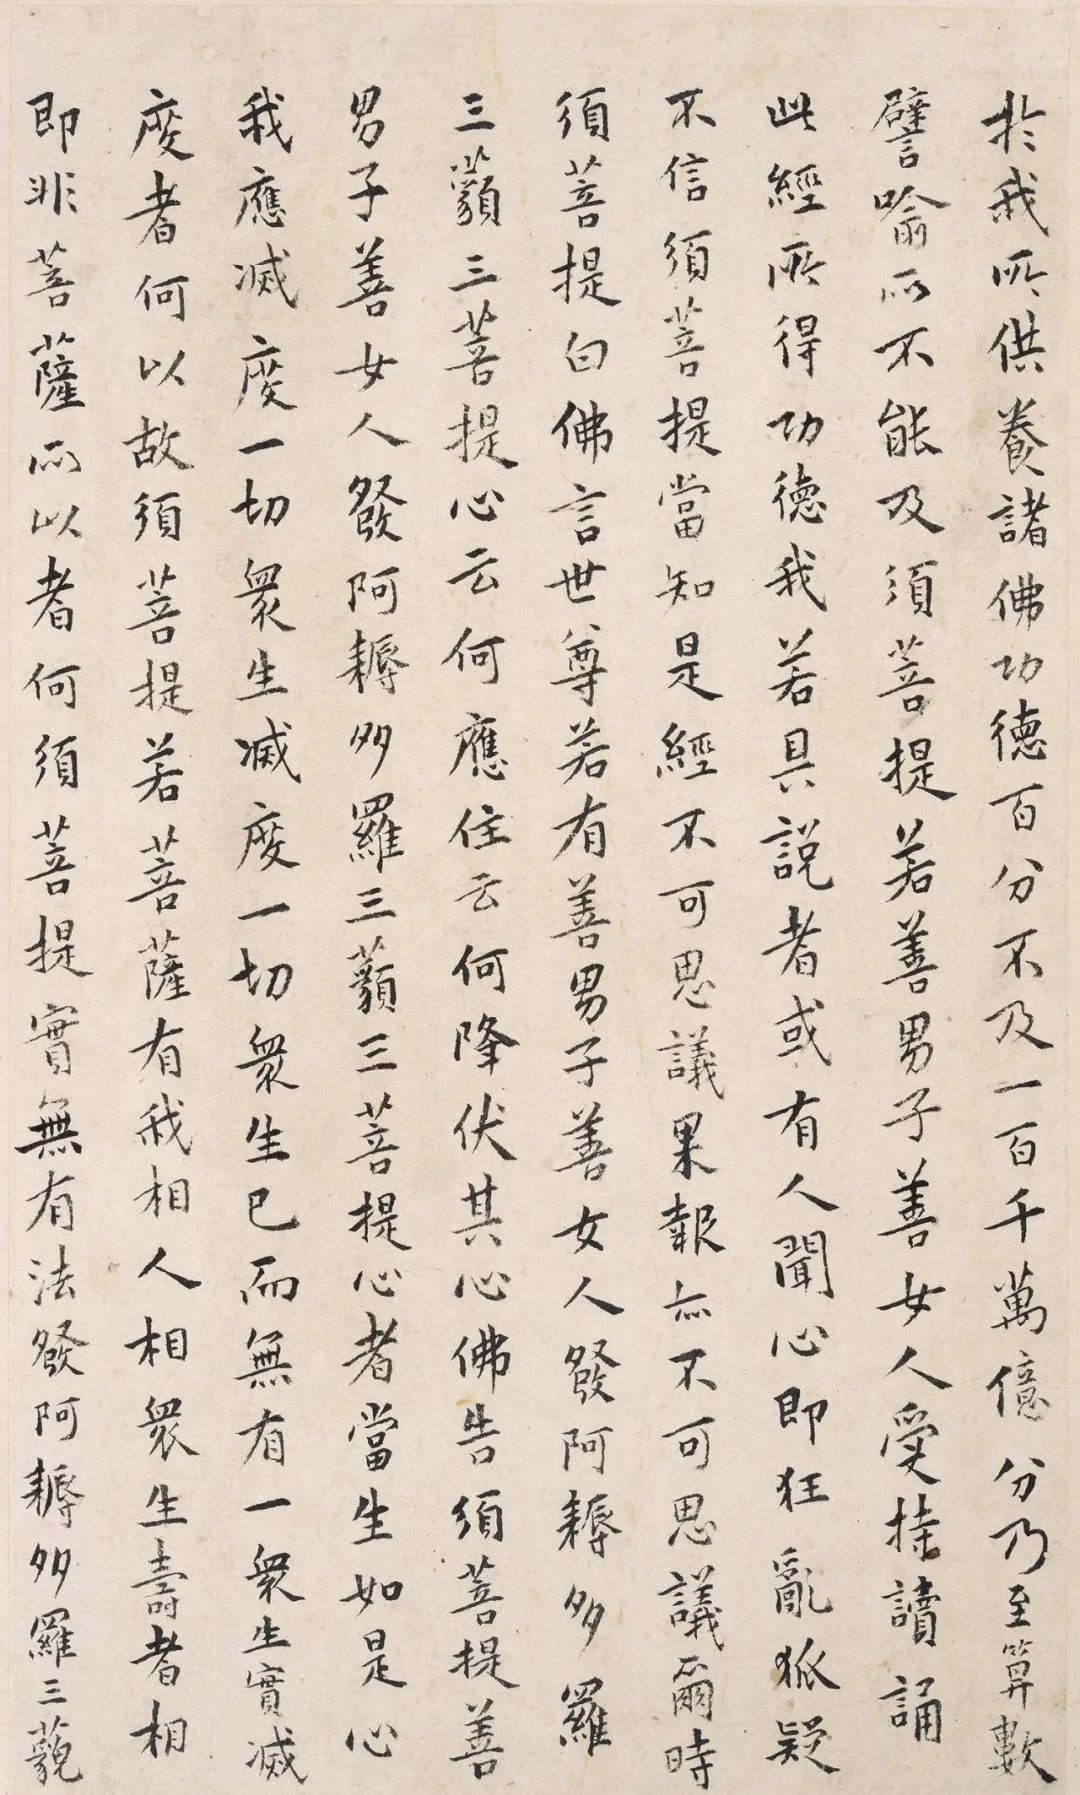 於我所供養諸佛功德百分不及一百千萬億分乃至算數
譬喻所不能及須菩提若善男子善女人受持讀誦
此經所得功德我若具說者或有人聞心即狂亂狐疑
不信須菩提當知是經不可思議果報亦不可思議爾時
須菩提白佛言世尊若有善男子善女人發阿耨多羅
三藐三菩提心云何應住云何降伏其心佛告須菩提善
男子善女人發阿耨多羅三藐三菩提心者當生如是心
我應滅度一切眾生滅度一切眾生已而無有一眾生實滅
度者何以故須菩提若菩薩有我相人相眾生壽者相
即非菩薩所以者何須菩提實無有法發阿耨多羅三藐